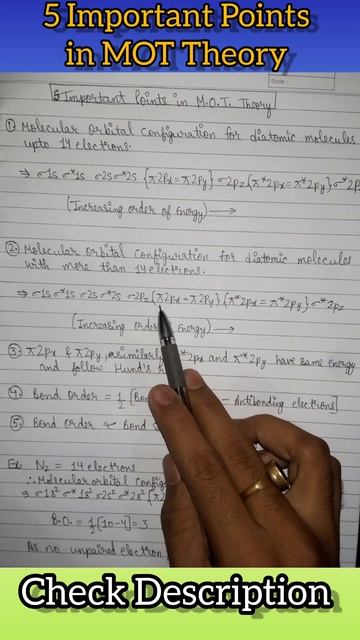 5 Important Points
in MOT Theory
Date :
5 Important Points in M.O.T. Theory
① Molecular Orbital Configuration for diatomic molecules
upto 14 electrons.
⇒ σ1s σ*1s σ2s σ*2s {π2px = π2py} σ2pz {π*2px = π*2py} σ*2p
(Increasing order of Energy) →
② Molecular Orbital Configuration for diatomic molecules
with more than 14 electrons.
⇒ σ1s σ*1s σ2s σ*2s σ2pz {π2px = π2py} {π*2px = π*2py} σ*2pz
(Increasing Order Energy) →
③ π2px & π2py, similarly 2px and π*2py have same energy
and follow Hund's
④ Bond Order = ½ [Bon - Antibonding electrons]
⑤ Bond Order ∝ Bond
Ex. N2 = 14 electrons
∴ Molecular orbital Config
⇒ σ1s² σ*1s² σ2s² σ*2s² {π2
B.O. = ½ [10-4] = 3
As no unpaired electron
Check Description